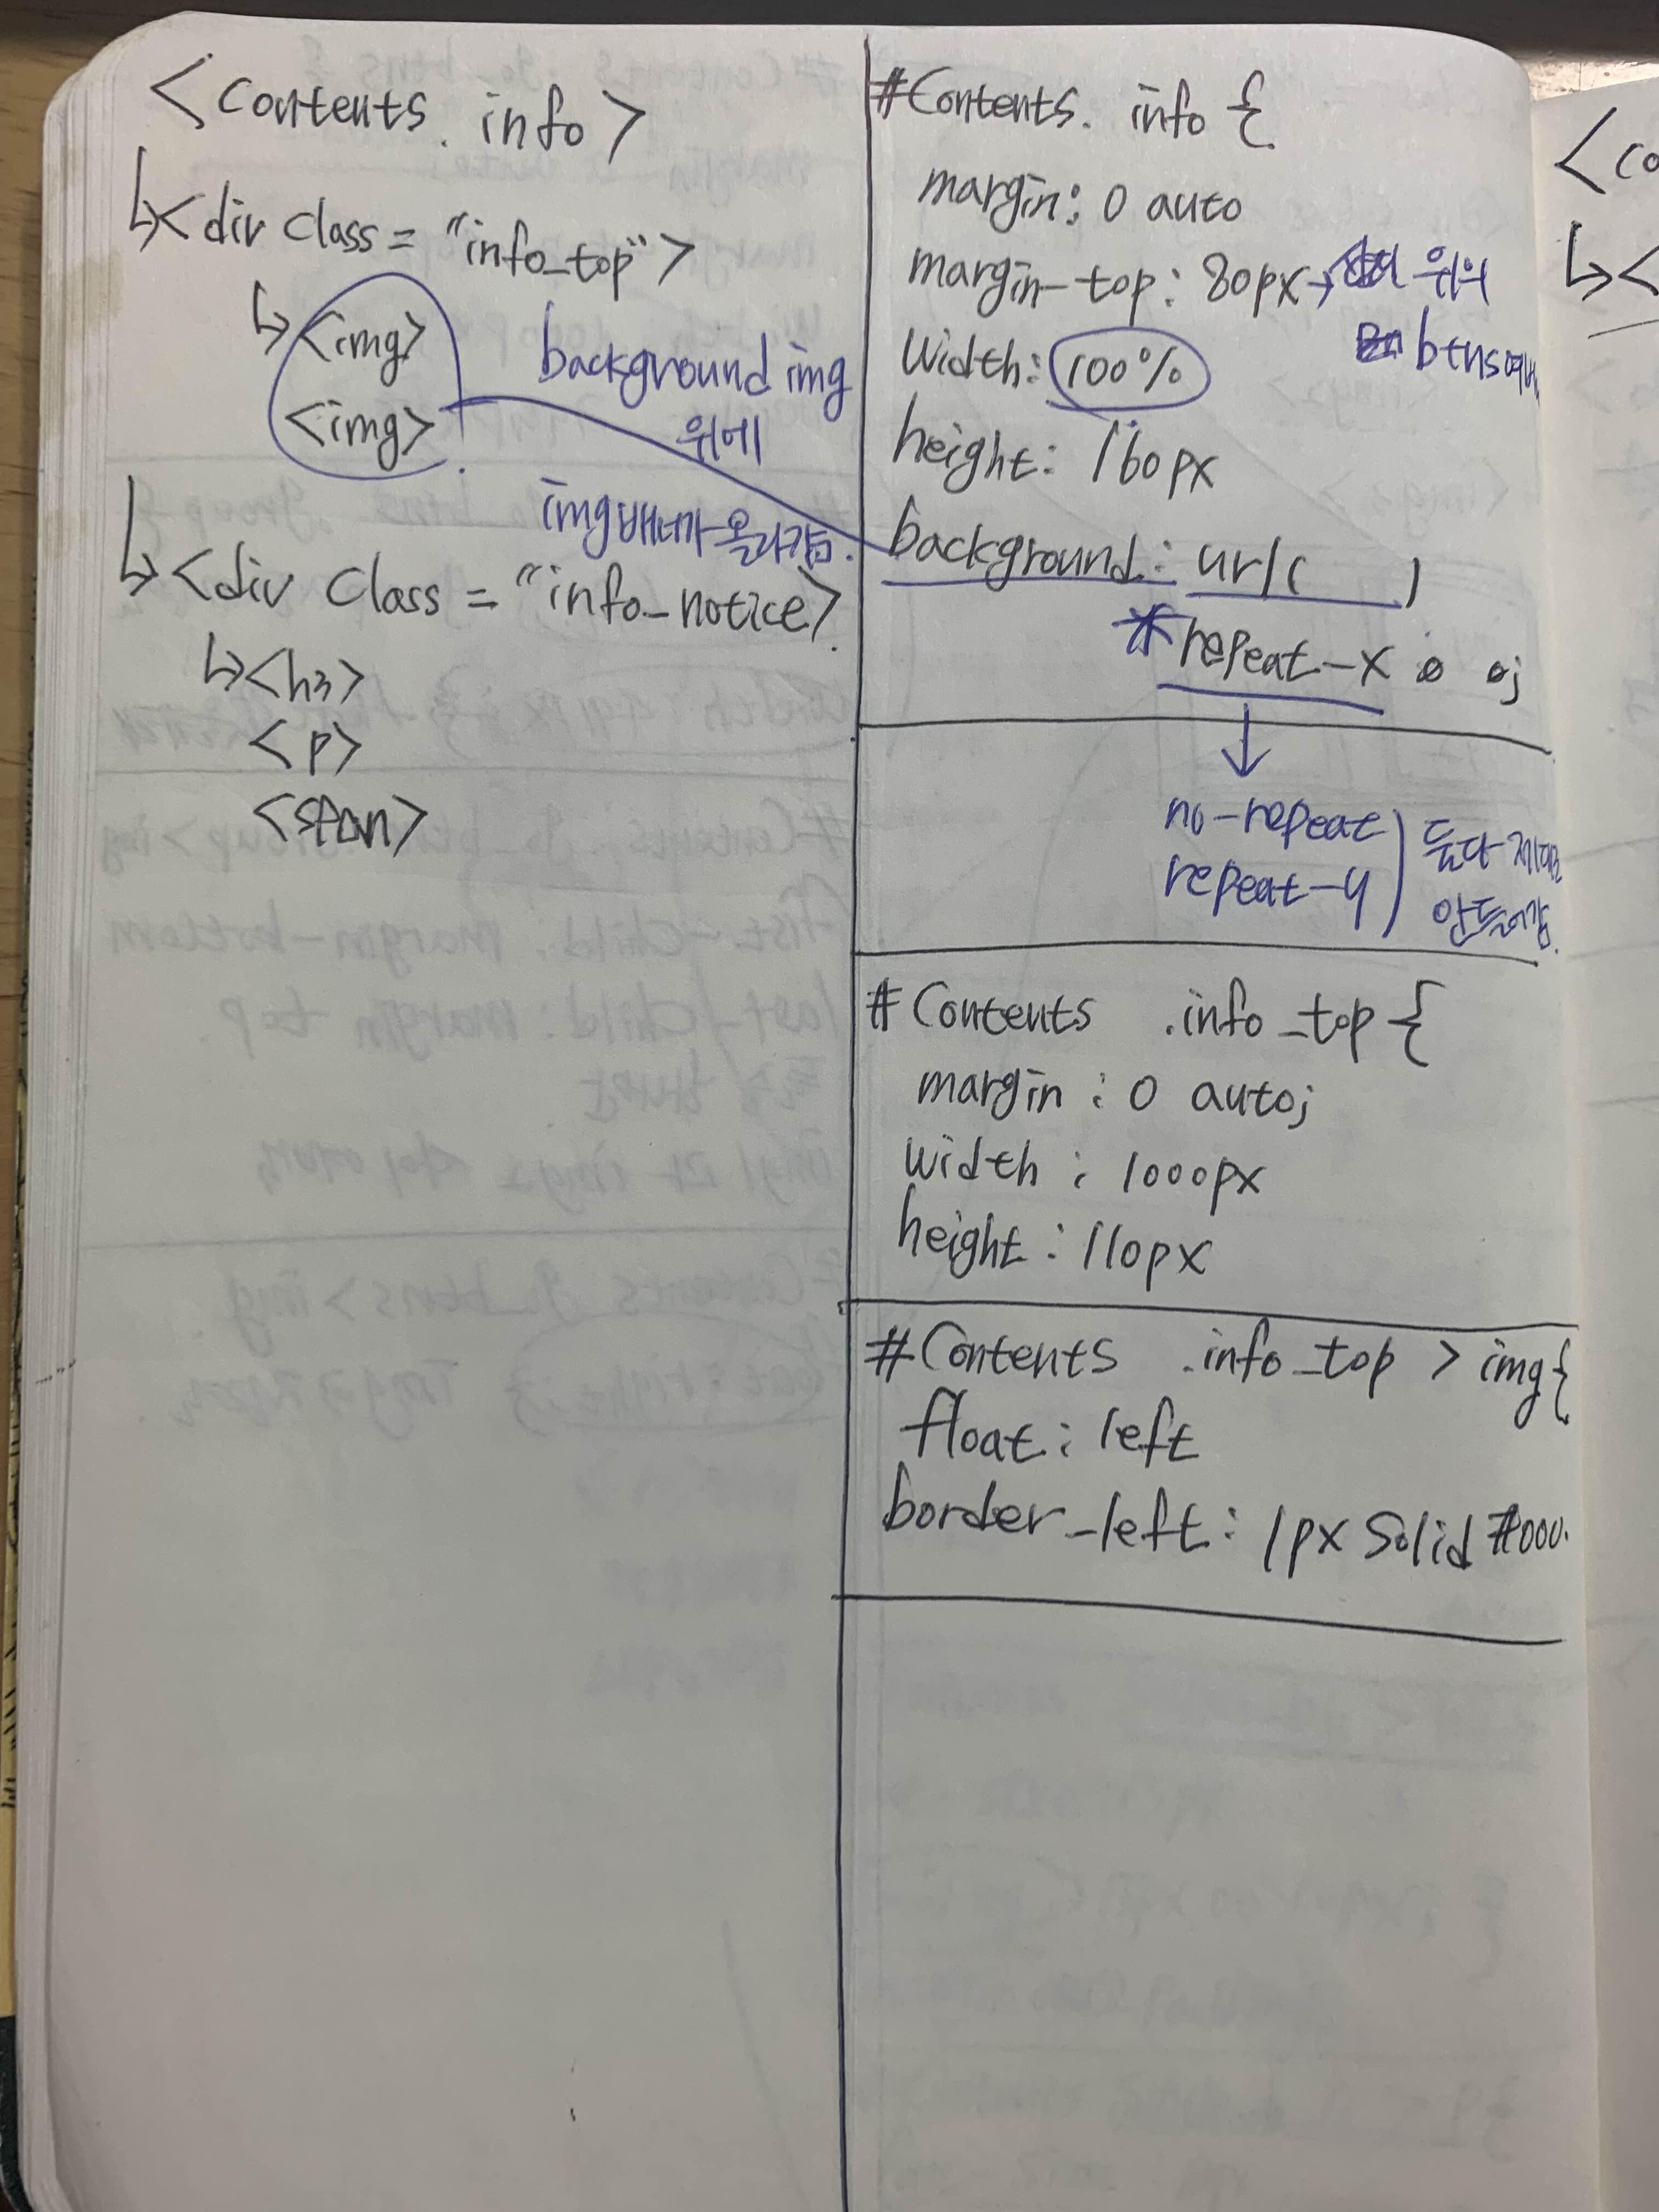 <contents. info>
↳<div class = "info_top">
↳<img>
<img>
background img
위에
img배너가 올라감.
↳<div class = "info_notice>
↳<h3>
<p>
<span>
#Contents. info {
margin: 0 auto
margin-top: 80px→ 위의
btns여백
width: 100%
height: 160px
background: url( )
*repeat-x 0 0;
↓
no-repeat
repeat-y
) 둘다 제대로
안들어감.
#Contents .info_top {
margin : 0 auto;
width : 1000px
height : 110px
#Contents .info_top > img{
float: left
border-left: 1px solid #000.
<co
↳<